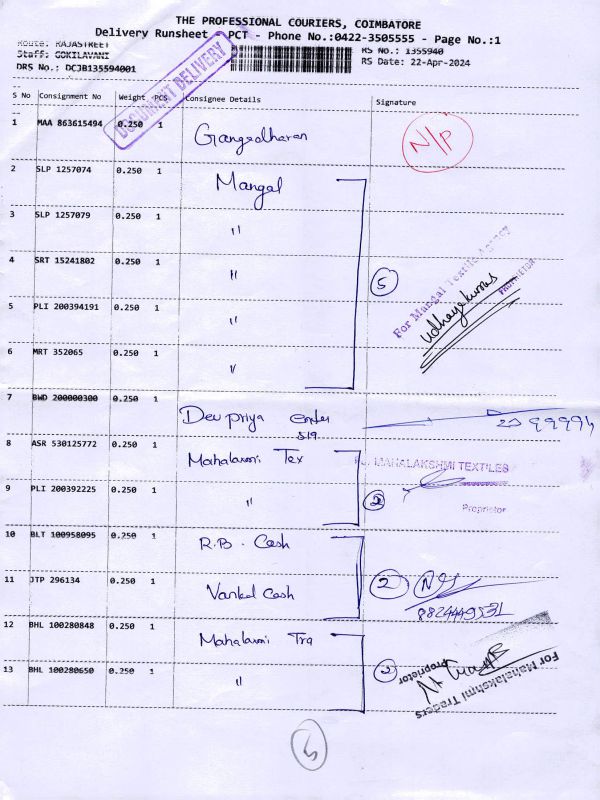 THE PROFESSIONAL COURIERS, COIMBATORE
Delivery Runsheet - PCT - Phone No.:0422-3505555 - Page No.:1
Route: RAJASTREET
Staff: GOKILAVANI
RS No.: 1355940
DRS No.: DCJB135594001
RS Date: 22-Apr-2024
DOCUMENT DELIVERY
S No Consignment No Weight PCS Consignee Details Signature
1 MAA 863615494 0.250 1 Gangadharan N/P
2 SLP 1257074 0.250 1 Mangal
3 SLP 1257079 0.250 1 "
4 SRT 15241802 0.250 1 " 5
For Mangal Textile Agency
udhayakumar
5 PLI 200394191 0.250 1 "
6 MRT 352065 0.250 1 "
7 BWD 200000300 0.250 1 Devpriya Enter
8 ASR 530125772 0.250 1 Mahalaxmi Tex
MAHALAKSHMI TEXTILES
9 PLI 200392225 0.250 1 " 2
Proprietor
10 BLT 100958095 0.250 1 R.B. Cash
11 JTP 296134 0.250 1 Vankal Cash 2
12 BHL 100280848 0.250 1 Mahalaxmi Tra
13 BHL 100280650 0.250 1 " 2
For Mahalakshmi Traders
Proprietor